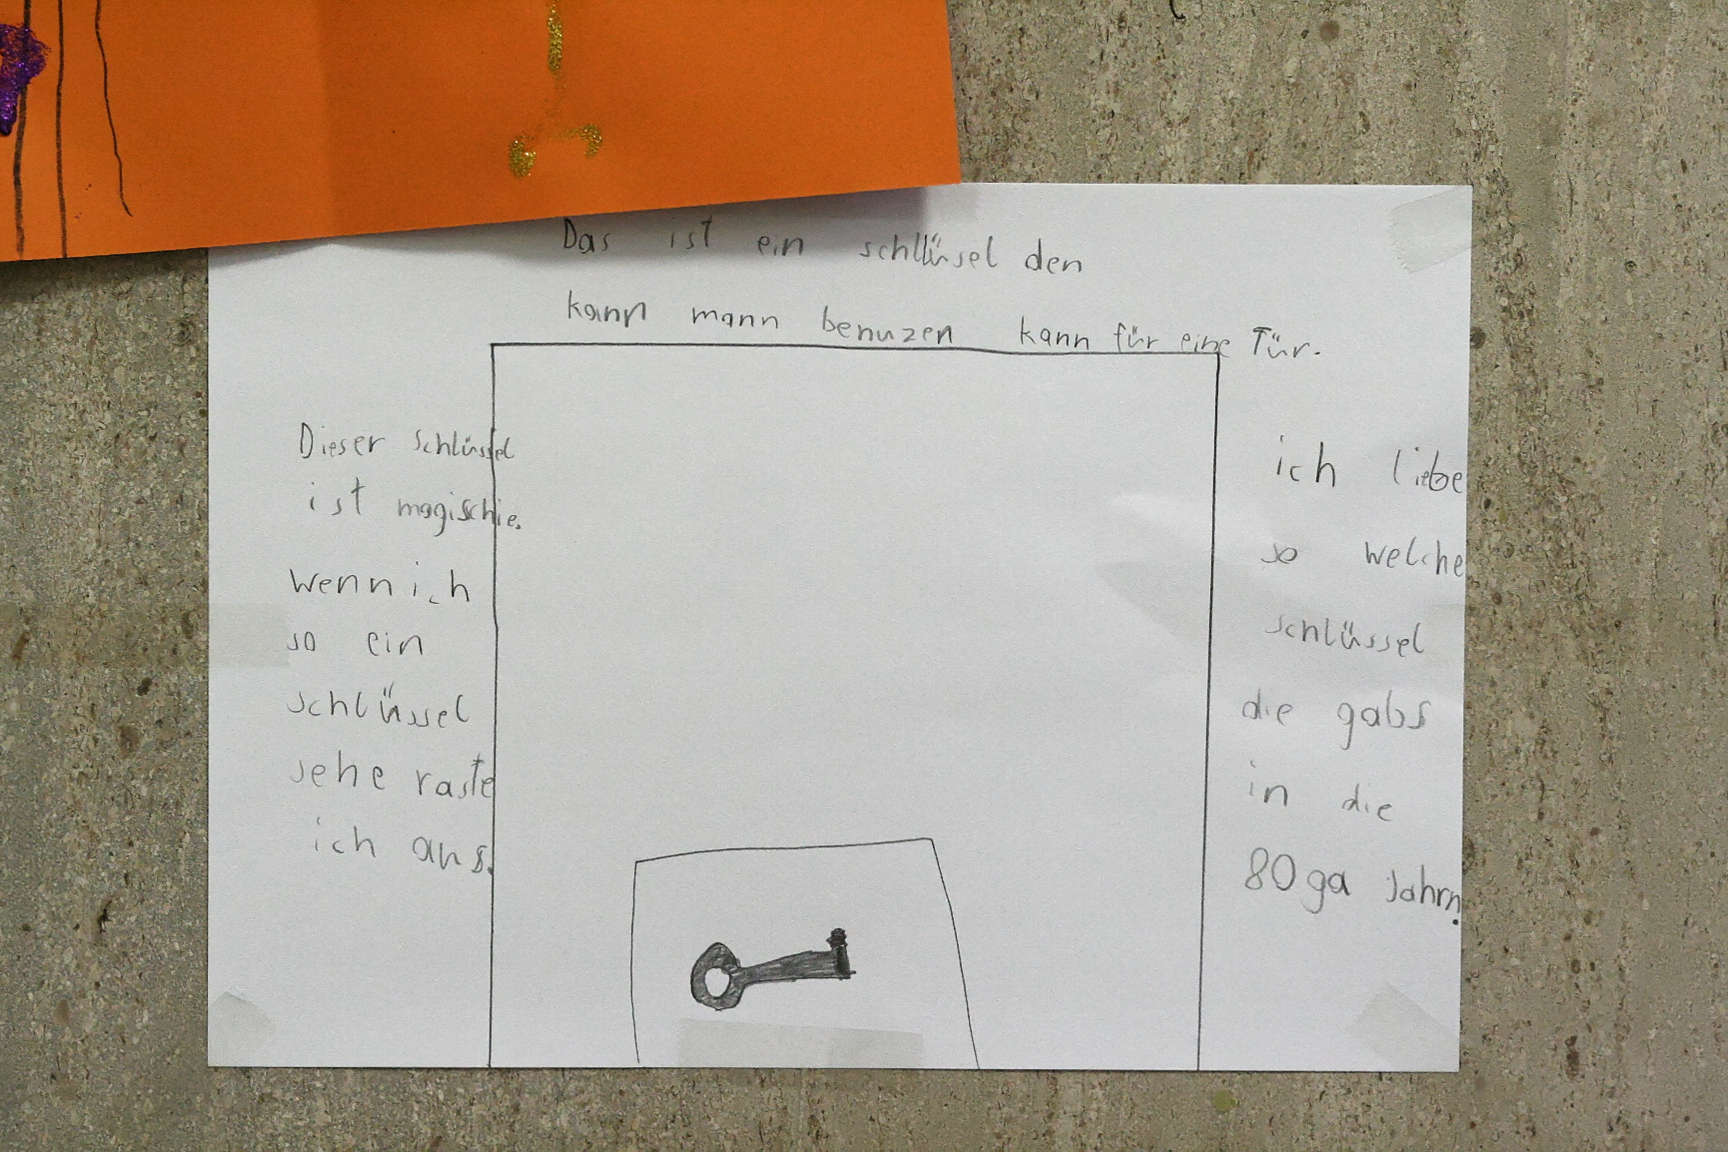 Das ist ein schllüsel den
kann mann benuzen kann für eine Tür.
Dieser Schlüssel
ist magischie.
wenn ich
so ein
schlüssel
sehe raste
ich aus.
ich liebe
so welche
schlüssel
die gabs
in die
80ga Jahrn.